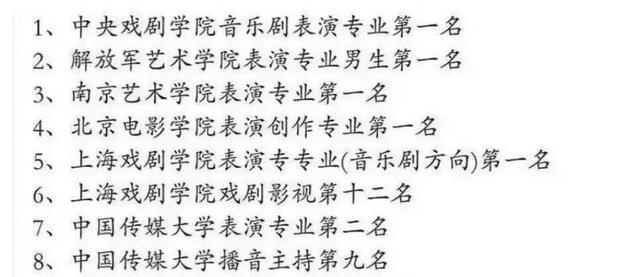 1、中央戏剧学院音乐剧表演专业第一名
2、解放军艺术学院表演专业男生第一名
3、南京艺术学院表演专业第一名
4、北京电影学院表演创作专业第一名
5、上海戏剧学院表演专专业(音乐剧方向)第一名
6、上海戏剧学院戏剧影视第十二名
7、中国传媒大学表演专业第二名
8、中国传媒大学播音主持第九名